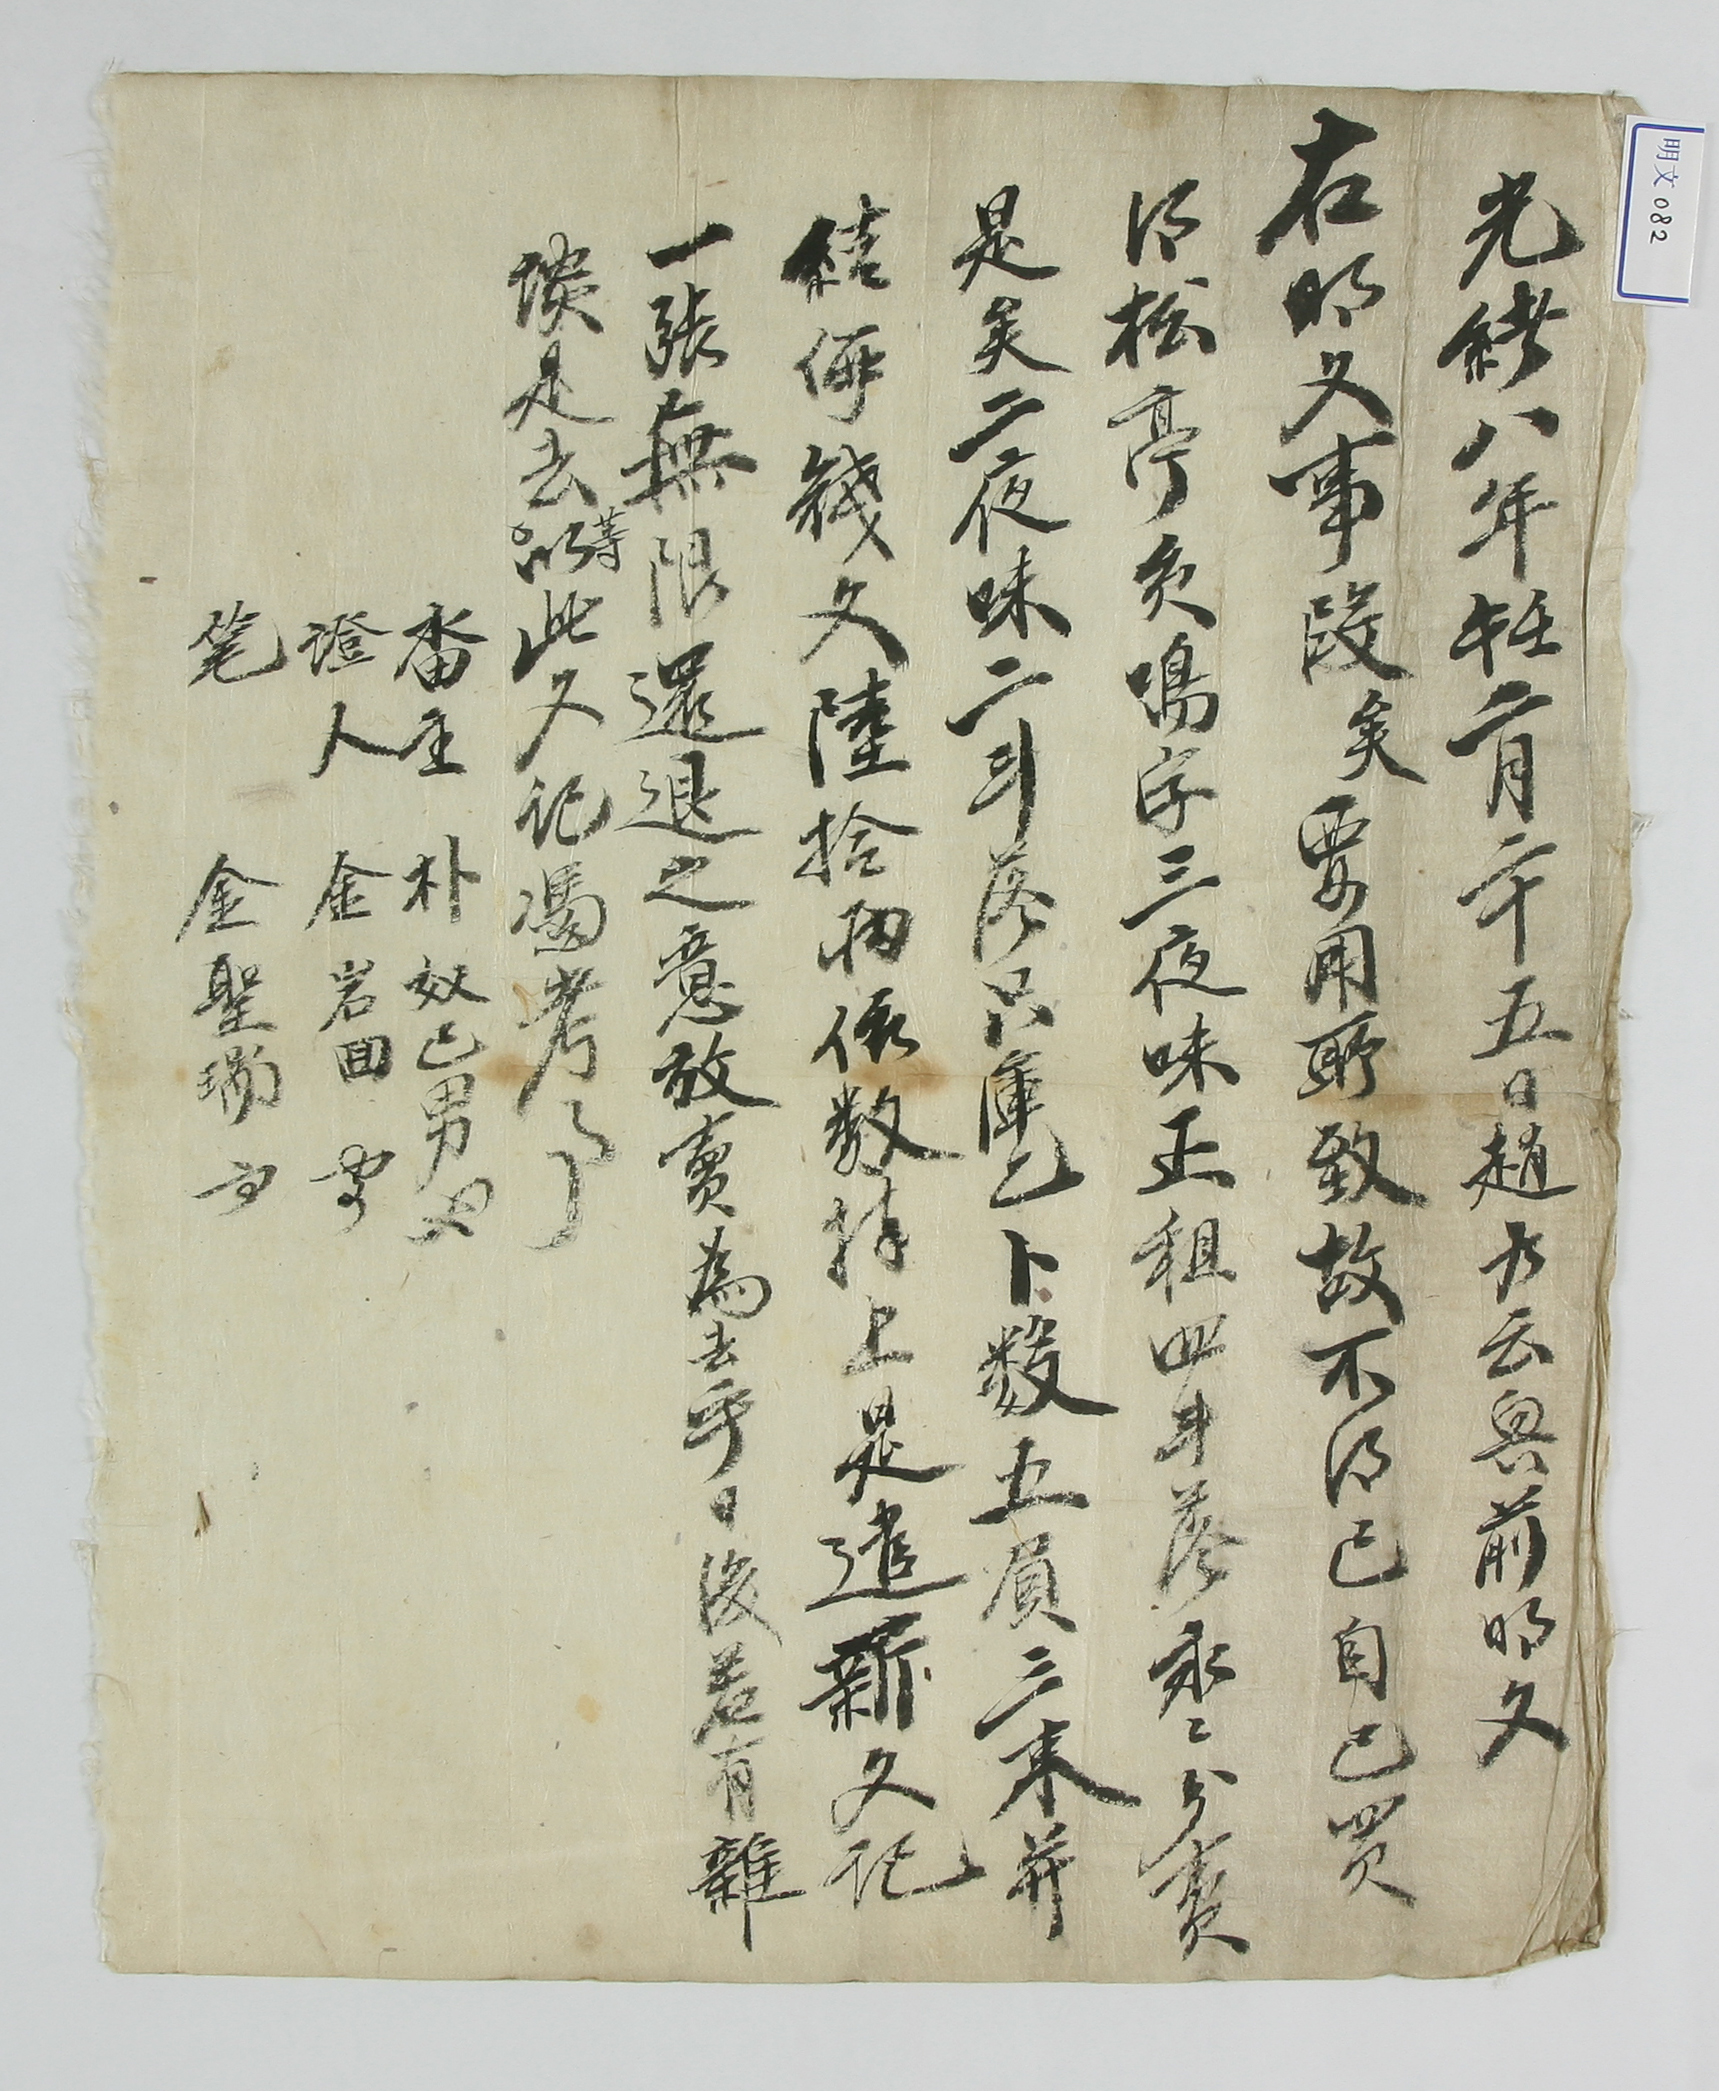 明文082
光緖八年壬午二月二十五日趙乃云奥前明文
右明文事段矣要用所致故不得已自己買
得松亭員鳴字三夜味正租四斗落永永分賣
是矣二夜味二斗落只庫乙卜數五負三束幷
結価錢文陸拾兩依數捧上是遣新文記
一張無限還退之意放賣爲去乎日後若有雜
談是去等以此文記憑考事
畓主 朴奴已男
證人 金岩回
筆 金聖瑞